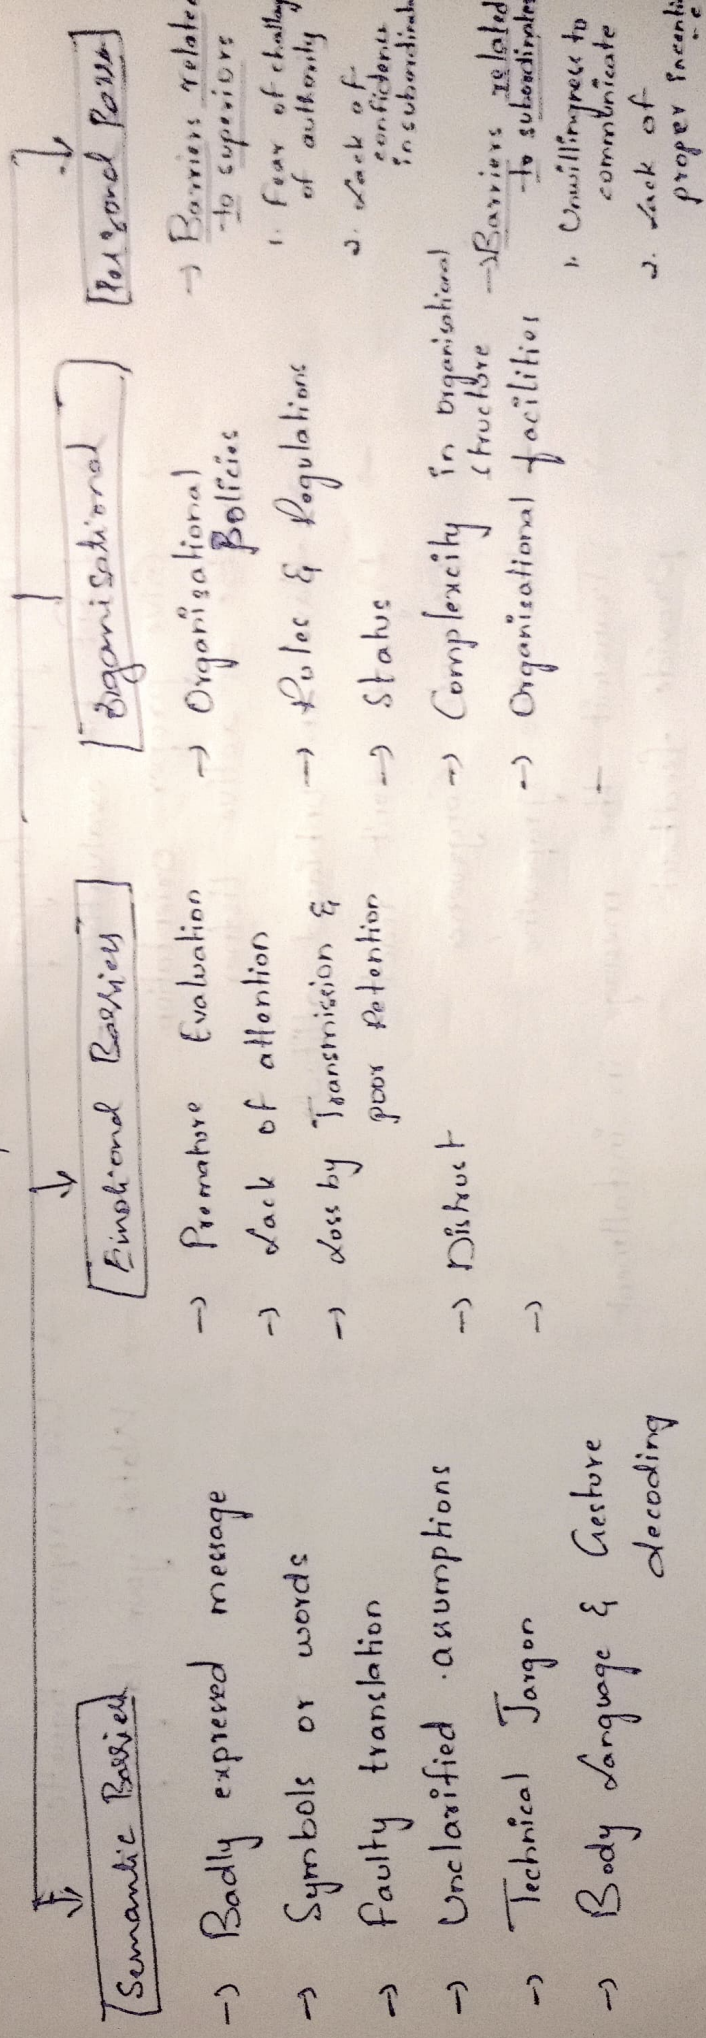 Semantic Barrier
→ Badly expressed message
→ Symbols or words
→ Faulty translation
→ Unclarified assumptions
→ Technical Jargon
→ Body Language & Gesture
decoding
Emotional Barriers
→ Premature Evaluation
→ Lack of attention
→ Loss by Transmission &
poor Retention
→ Distrust
→
Organisational
→ Organisational
Policies
→ Rules & Regulations
→ Status
→ Complexcity in organisational
structure
→ Organisational facilities
Personal
→ Barriers related
to superiors
1. Fear of
of authority
2. Lack of
confidence
in subordinate
→ Barriers related
to subordinates
1. Unwillingness to
communicate
2. Lack of
proper